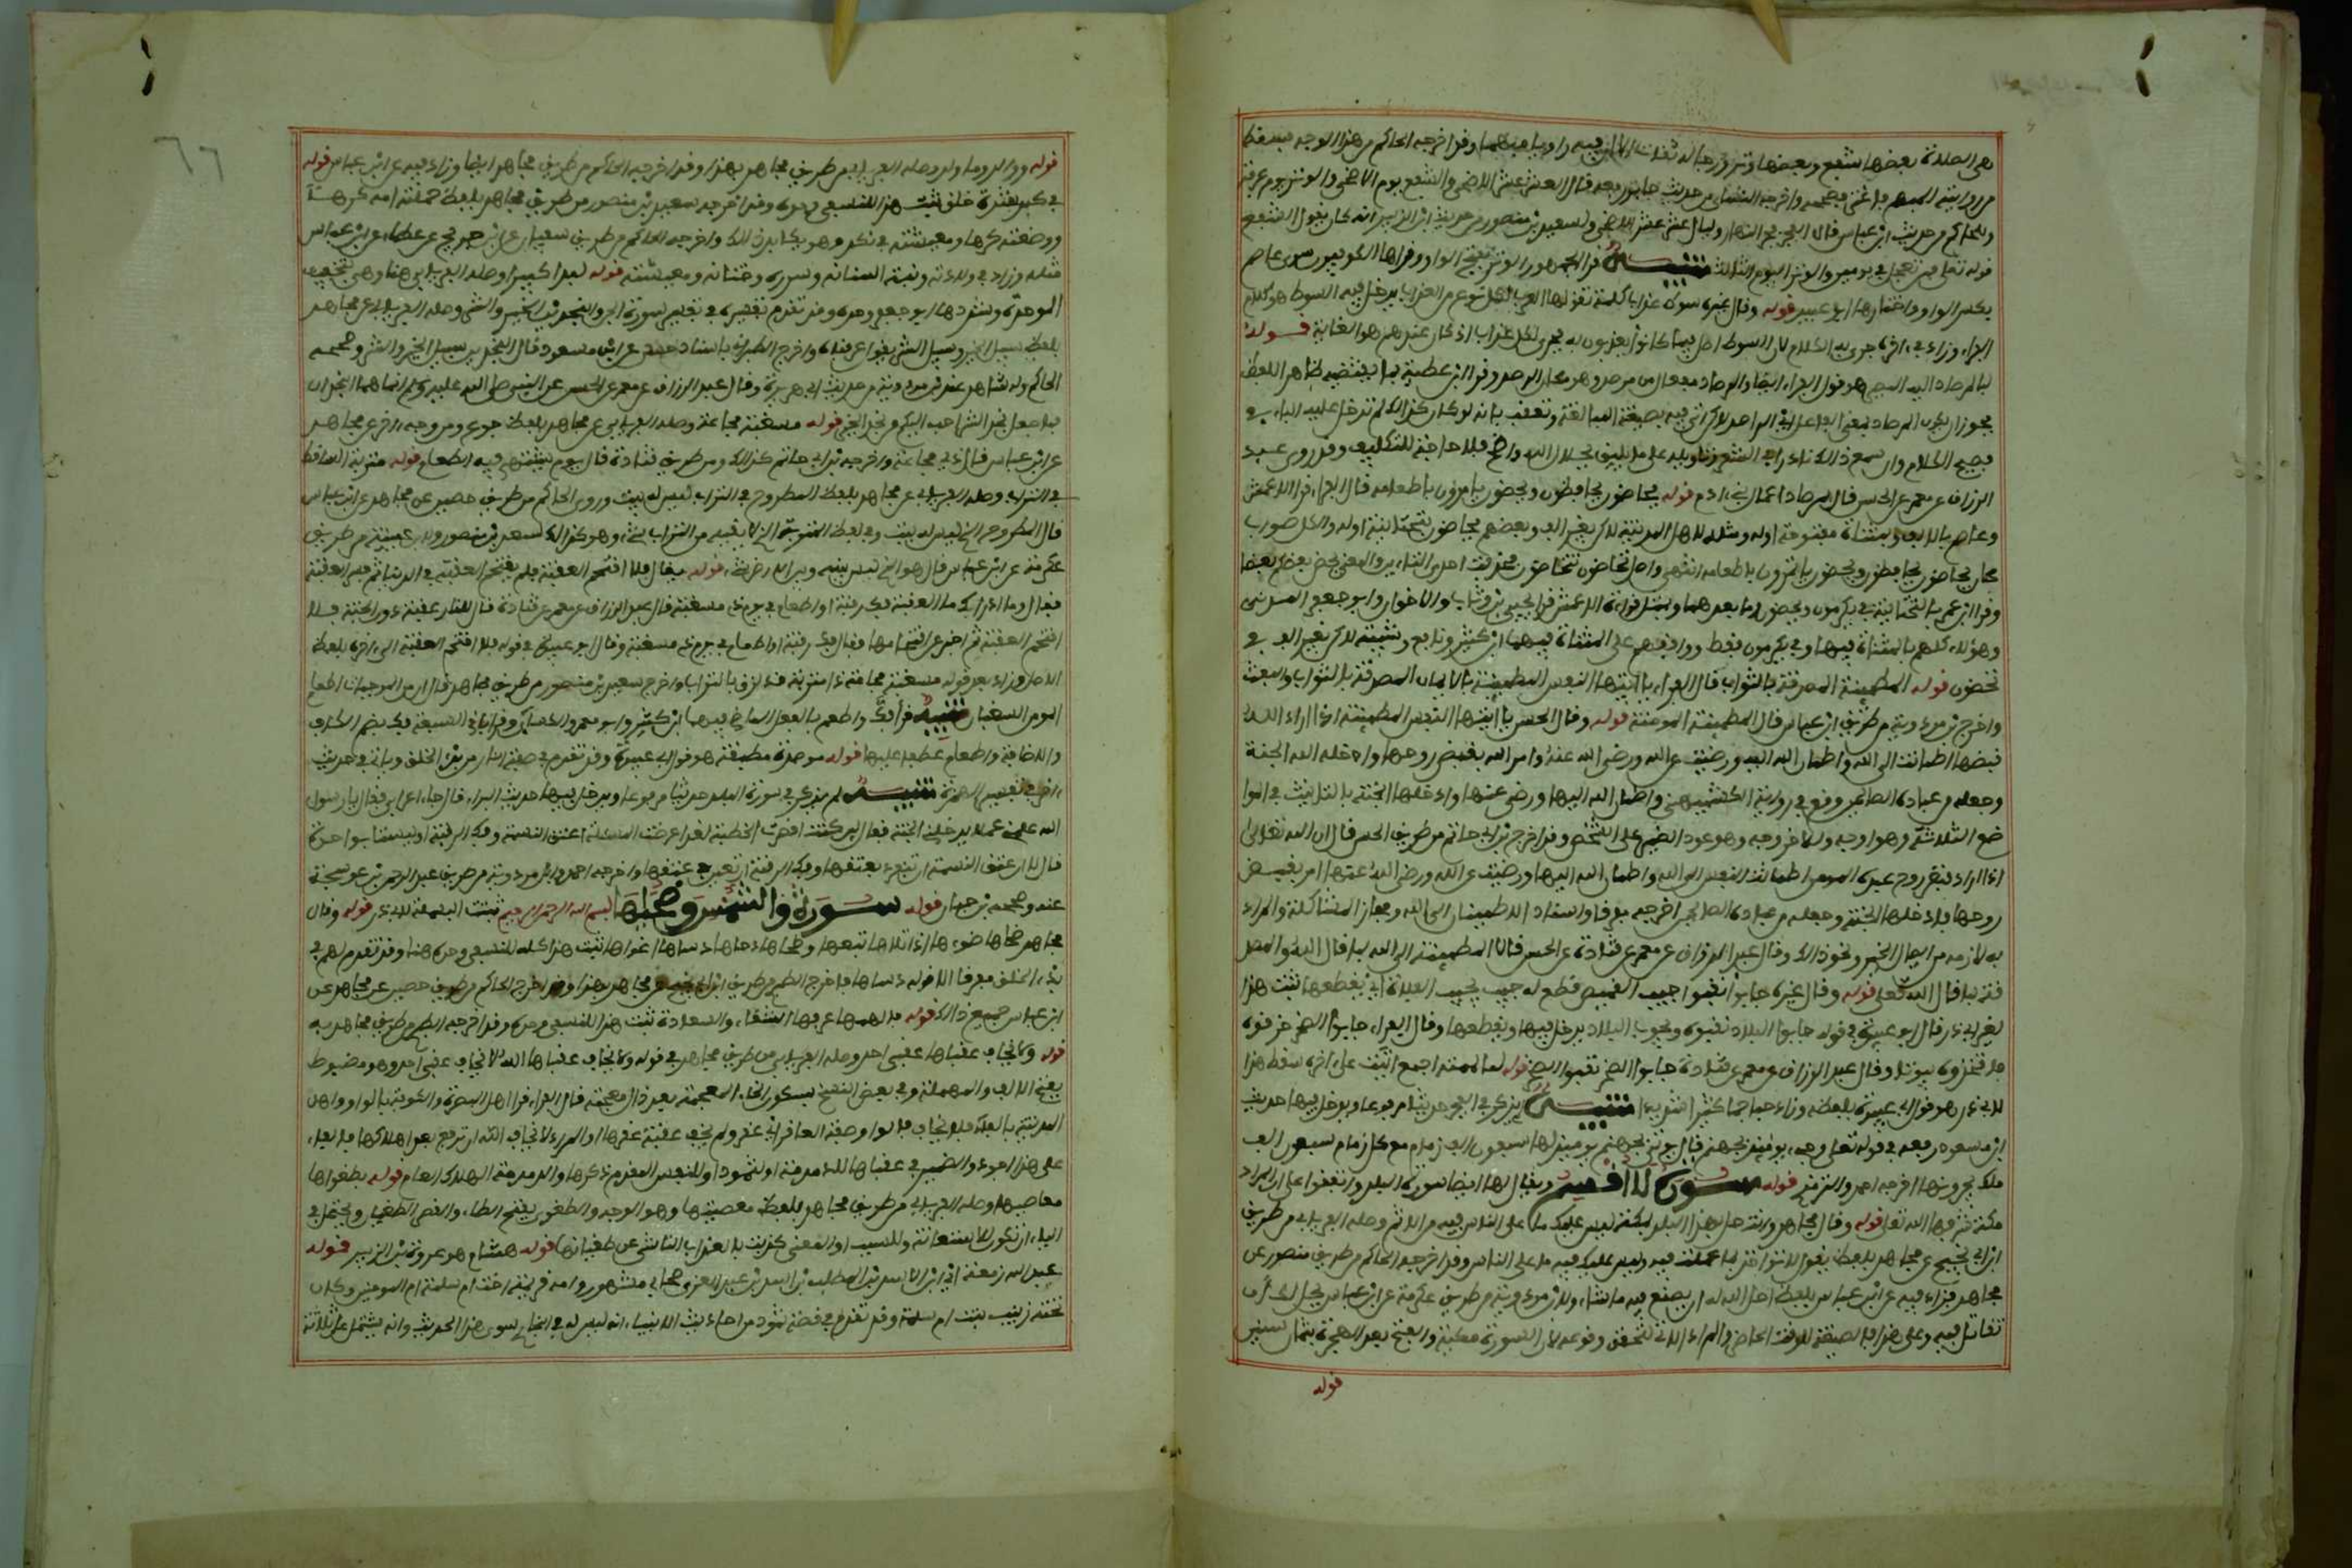 هي الصلاة بعضها شفع وبعضها وتر ورجاله ثقات الا ان فيه راويا مبهما وقد اخرجه الحاكم من هذا الوجه فسقط
من روايته المبهم فاغتر فصححه واخرج النسائي من حديث جابر رفعه قال العشر عشر الاضحى والشفع يوم الاضحى والوتر يوم عرفة
وللحاكم من حديث ابن عباس قال الفجر فجر النهار وليال عشر عشر الاضحى ولسعيد بن منصور من حديث ابن الزبير انه كان يقول الشفع
قوله تعلى فمن تعجل في يومين والوتر اليوم الثالث تنبيه قرا الجمهور الوتر بفتح الواو وقراها الكوفيون سوى عاصم
بكسر الواو واختارها ابو عبيد قوله وقال غيره سوط عذاب كلمة تقولها العرب لكل نوع من العذاب يدخل فيه السوط هو كلام
الفراء وزاد في اخره جرى به الكلام لان السوط اصل ما كانوا يعذبون به فجرى لكل عذاب اذ كان عندهم هو الغاية قوله
لبالمرصاد اليه المصير هو قول الفراء ايضا والمرصاد مفعال من المرصد وهو مكان الرصد وقرا ابن عطية بما يقتضيه ظاهر اللفظ
يجوز ان يكون المرصاد بمعنى الفاعل اي الراصد لاكن اتي فيه بصيغة المبالغة وتعقب بانه لو كان كذالك لم تدخل عليه الباء في
فصيح الكلام وان سمع ذالك نادرا في الشعر وتاويله على ما يليق بجلال الله واضح فلا حاجة للتكلف وقد روى عبد
الرزاق عن معمر عن الحسن قال بمرصاد اعمال بني ادم قوله تحاضون تحافظون وتحضون تامرون باطعامه قال الفراء قرا الاعمش
وعاصم بالالف وبمثناة مفتوحة اوله ومثله لاهل المدينة لاكن بغير الف وبعضهم يحاضون بتحتانية اوله والكل صواب
كان تحاضون تحافظون وتحضون تامرون باطعامه انتهى واصل تحاضون تتحاضون فحذفت احدى التاءين والمعنى يحض بعضكم بعضا
وقرا ابو عمرو بالتحتانية في يكرمون ويحضون وما بعدهما وبمثل قراءة الاعمش قرا يحيى بن وثاب والاخوان وابو جعفر المدني
وهؤلاء كلهم بالمثناة فيها وفي يكرمون فقط ووافقهم على المثناة فيهما ابن كثير ونافع وشيبة لاكن بغير الف في
تحضون قوله المطمئنة المصدقة بالثواب قال الفراء يا ايتها النفس المطمئنة بالايمان المصدقة بالثواب والبعث
واخرج بن مردوية من طريق ابن عباس قال المطمئنة المومنة قوله وقال الحسن يا ايتها النفس المطمئنة اذا اراد الله
قبضها اطمانت الى الله واطمان الله اليه ورضيت عن الله ورضي الله عنه وامر الله بقبض روحها وادخله الله الجنة
وجعله من عباده الصالحين وقع في رواية الكشميهني واطمان الله اليها ورضي عنها وادخلها الجنة بالتانيث في المو
ضع الثلاثة وهو اوجه وللاخر وجه وهو عود الضمير على الشخص وقد اخرج بن ابي حاتم من طريق الحسن قال ان الله تعلى
اذا اراد قبض روح عبده المومن اطمانت النفس الى الله واطمان الله اليها ورضيت عن الله ورضي الله عنها امر بقبض
روحها فادخلها الجنة وجعله من عباده الصالحين اخرجه مفرقا واسناد الاطمئنان الى الله من مجاز المشاكلة والمراد
به لازمه من ايصال الخير ونحو ذالك وقال عبد الرزاق عن معمر عن قتادة عن الحسن قال المطمئنة الى الله بما قال الله والمصد
قة بما قال الله تعلى قوله وقال غيره جابوا نقبوا جيب القميص قطع له جيب يجيب الفلاة اي يقطعها ثبت هذا
لغير ابي ذر وقال ابو عبيدة في قوله جابوا البلاد نقبوه ويجوب البلاد يدخل فيها ويقطعها وقال الفراء جابوا الصخر خرقوه
فاتخذوه بيوتا وقال عبد الرزاق عن معمر عن قتادة جابوا الصخر نقبوا الصخر قوله لما لممته اجمع اتيت على اخره سقط هذا
لابي ذر وهو قول ابي عبيدة بلفظه وزاد حبا جما كثيرا شديدا تنبيه لم يذكر في الفجر حديثا مرفوعا ويدخل فيها حديث
ابن مسعود رفعه في قوله تعلى وجيء يومئذ بجهنم قال يوتى بجهنم يومئذ لها سبعون الف زمام مع كل زمام سبعون الف
ملك يجرونها اخرجه احمد والترمذي قوله سورة لا اقسم ويقال لها ايضا سورة البلد واتفقوا على ان المراد
مكة شرفها الله تعلى قوله وقال مجاهد وانت حل بهذا البلد بمكة ليس عليك ما على الناس فيه من الاثم وصله الفريابي من طريق
ابن ابي نجيح عن مجاهد بلفظ يقول لا تواخذ بما عملت فيه وليس عليك فيه ما على الناس وقد اخرجه الحاكم من طريق منصور عن
مجاهد فزاد فيه عن ابن عباس بلفظ احل الله له ان يصنع فيه ما شاء ولابن مردوية من طريق عكرمة عن ابن عباس يحل لك ان
تقاتل فيه وعلى هذا فالصيغة للوقت الحاضر والمراد الاتي لتحقق وقوعه لان السورة مكية والفتح بعد الهجرة بثمان سنين
قوله
٦٦
قوله ووالد وما ولد وصله الفريابي من طريق مجاهد بهذا وقد اخرجه الحاكم من طريق مجاهد ايضا وزاد فيه عن ابن عباس قوله
في كبد شدة خلق ثبت هذا للنسفي وحده وقد اخرجه سعيد بن منصور من طريق مجاهد بلفظ حملته امه كرها
ووضعته كرها ومعيشته في نكد وهو يكابد ذالك واخرجه الحاكم من طريق سفيان عن ابن جريج عن عطاء عن ابن عباس
مثله وزاد في ولادته ونبتة اسنانه وسرره وختانه ومعيشته قوله لبدا كثيرا وصله الفريابي بهذا وهي بتخفيف
الموحدة وشددها ابو جعفر وحده وقد تقدم تفسيره في تفسير سورة الجن والنجدين الخير والشر وصله الفريابي عن مجاهد
بلفظ سبيل الخير وسبيل الشر يقول عرفناه واخرج الطبراني باسناد حسن عن ابن مسعود قال النجدين سبيل الخير والشر وصححه
الحاكم وله شاهد عند بن مردوية من حديث ابي هريرة وقال عبد الرزاق عن معمر عن الحسن عن النبي صلى الله عليه وسلم انما هما النجدان
فما جعل نجد الشر احب اليكم من نجد الخير قوله مسغبة مجاعة وصله الفريابي عن مجاهد بلفظ جوع ومن وجه اخر عن مجاهد
عن ابن عباس قال ذي مجاعة واخرجه بن ابي حاتم كذالك ومن طريق قتادة قال يوم يشتهى فيه الطعام قوله متربة الساقط
في التراب وصله الفريابي عن مجاهد بلفظ المطروح في التراب ليس له بيت وروى الحاكم من طريق حصين عن مجاهد عن ابن عباس
قال المطروح الذي ليس له بيت وفي لفظ المتربة الذي لا يقيه من التراب شيء وهو كذالك لسعيد بن منصور ولابن عيينة من طريق
عكرمة عن ابن عباس قال هو الذي ليس بينه وبين الارض شيء قوله يقال فلا اقتحم العقبة فلم يقتحم العقبة في الدنيا ثم فسر العقبة
فقال وما ادراك ما العقبة فك رقبة او اطعام في يوم ذي مسغبة قال عبد الرزاق عن معمر عن قتادة قال للنار عقبة دون الجنة فلا
اقتحم العقبة ثم اخبر عن اقتحامها فقال فك رقبة او اطعام في يوم ذي مسغبة وقال ابو عبيدة في قوله فلا اقتحم العقبة الى اخره بلفظ
الاصل وزاد بعد قوله مسغبة مجاعة ذا متربة قد لزق بالتراب واخرج سعيد بن منصور من طريق مجاهد قال ان من الموجبات اطعام
المومن السغبان تنبيه قرا فك واطعم بالفعل الماضي فيهما ابن كثير وابو عمرو والكسائي وقرا باقي السبعة فك بضم الكاف
والاضافة واطعام عطفا عليها قوله موصدة مطبقة هو قول ابي عبيدة وقد تقدم في صفة النار من بدء الخلق وياتي في حديث
اخر في تفسير الهمزة تنبيه لم يذكر في سورة البلد حديثا مرفوعا ويدخل فيها حديث البراء قال جاء اعرابي فقال يا رسول
الله علمني عملا يدخلني الجنة فقال لئن كنت اقصرت الخطبة لقد اعرضت المسئلة اعتق النسمة وفك الرقبة اوليستا بواحدة
قال لا ان عتق النسمة ان تنفرد بعتقها وفك الرقبة ان تعين في عتقها واخرجه احمد وابن مردوية من طريق عبد الرحمن بن عوسجة
عنه وصححه بن حبان قوله سورة والشمس وضحاها بسم الله الرحمن الرحيم ثبتت البسملة لابي ذر قوله وقال
مجاهد ضحاها ضوءها اذا تلاها تبعها وطحاها دحاها دساها اغواها ثبت هذا كله للنسفي وحده هنا وقد تقدم لهم في
بدء الخلق مفرقا الا قوله دساها فاخرج الطبري من طريق ابن ابي نجيح عن مجاهد بهذا وقد اخرج الحاكم من طريق حصين عن مجاهد عن
ابن عباس جميع ذالك قوله فالهمها عرفها الشقاء والسعادة ثبت هذا للنسفي وحده وقد اخرجه الطبري من طريق مجاهد به
قوله ولا يخاف عقباها عقبى احد وصله الفريابي من طريق مجاهد في قوله ولا يخاف عقباها الله لا يخاف عقبى احد وهو مضبوط
بفتح الالف والمهملة وفي بعض النسخ بسكون الخاء المعجمة بعد ذال معجمة قال الفراء قرا اهل البصرة والكوفة بالواو واهل
المدينة بالفاء فلا يخاف فالواو صفة العاقر اي عقر ولم يخف عقبة عقرها او المراد لا يخاف الله ان ترجع بعد اهلاكها فالفاء
على هذا اجود والضمير في عقباها للدمدمة او لثمود او للنفس المقدم ذكرها والدمدمة الهلاك العام قوله بطغواها
معاصيها وصله الفريابي من طريق مجاهد بلفظ معصيتها وهو الوجه والطغوى بفتح الطاء والقصر الطغيان ويحتمل في
الباء ان تكون للاستعانة وللسبب او المعنى كذبت بالعذاب الناشئ عن طغيانها قوله هشام هو عروة بن الزبير قوله
عبد الله بن زمعة اي ابن الاسود بن المطلب بن اسد بن عبد العزى صحابي مشهور وامه قريبة اخت ام سلمة ام المومنين وكان
تحته زينب بنت ام سلمة وقد تقدم في قصة ثمود من احاديث الانبياء انه ليس له في البخاري سوى هذا الحديث وانه يشتمل على ثلاثة